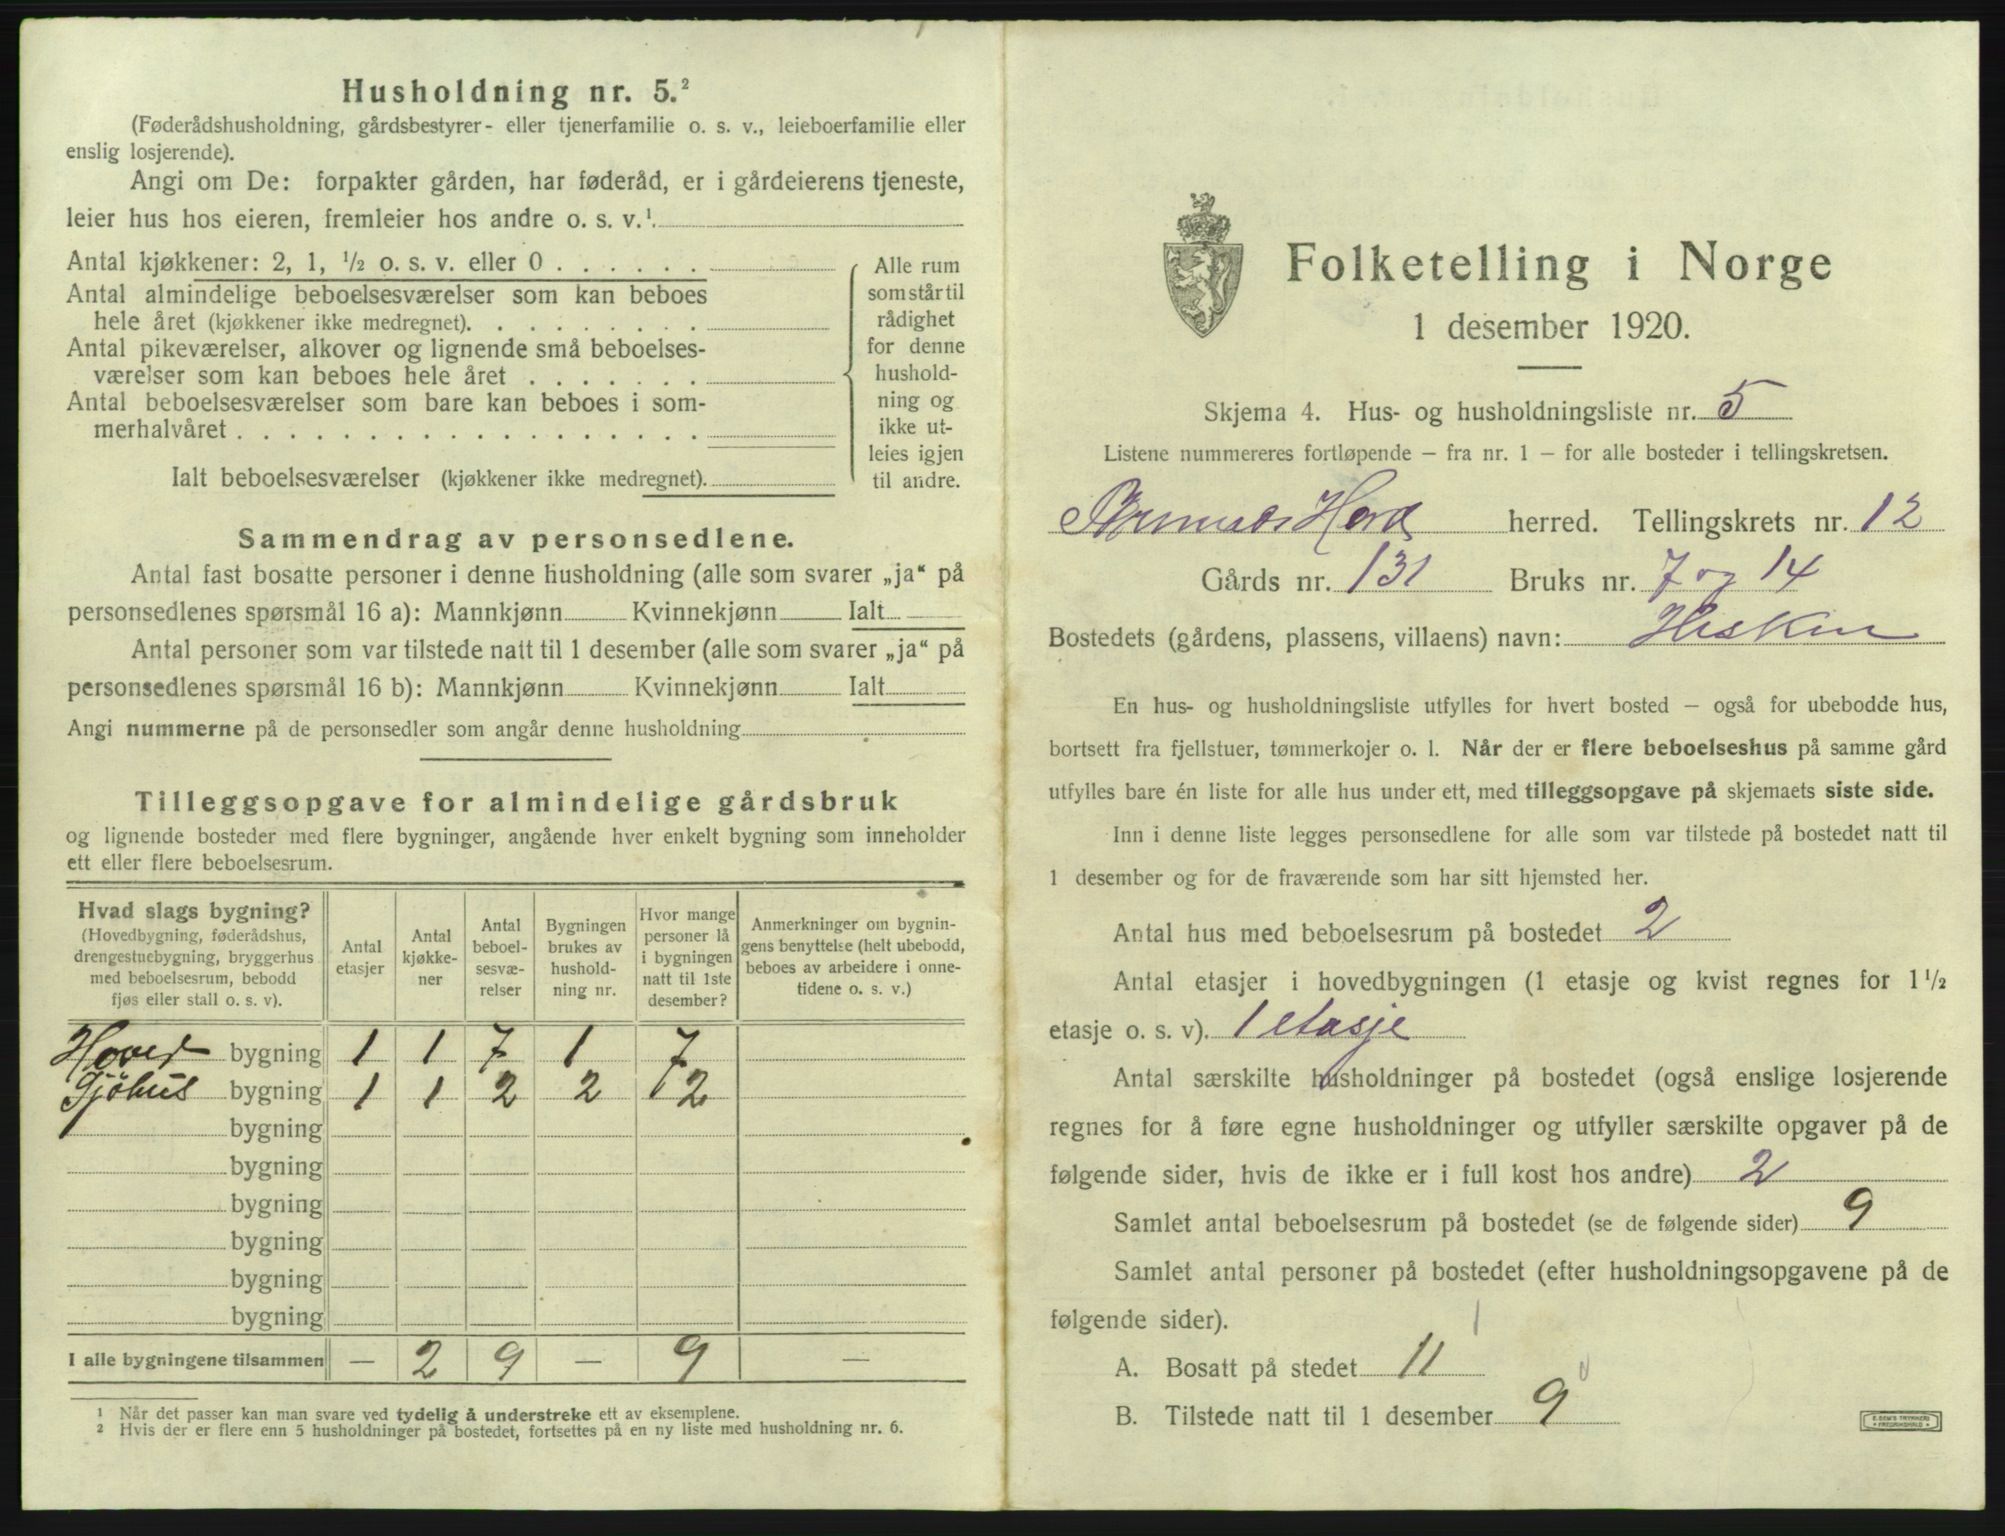 Husholdning nr. 5.²
(Føderådshusholdning, gårdsbestyrer- eller tjenerfamilie o. s. v., leieboerfamilie eller
enslig losjerende).
Angi om De: forpakter gården, har føderåd, er i gårdeierens tjeneste,
leier hus hos eieren, fremleier hos andre o. s. v.¹
Antal kjøkkener: 2, 1, ½ o. s. v. eller 0 . . . . . .
Antal almindelige beboelsesværelser som kan beboes
hele året (kjøkkener ikke medregnet). . . . . . . . .
Antal pikeværelser, alkover og lignende små beboelses-
værelser som kan beboes hele året . . . . . . .
Antal beboelsesværelser som bare kan beboes i som-
merhalvåret . . . . . . . . . . . . . . . . . .
Ialt beboelsesværelser (kjøkkener ikke medregnet).
Alle rum
som står til
rådighet
for denne
hushold-
ning og
ikke ut-
leies igjen
til andre.
Sammendrag av personsedlene.
Antal fast bosatte personer i denne husholdning (alle som svarer „ja“ på
personsedlenes spørsmål 16 a): Mannkjønn Kvinnekjønn Ialt
Antal personer som var tilstede natt til 1 desember (alle som svarer „ja“ på
personsedlenes spørsmål 16 b): Mannkjønn Kvinnekjønn Ialt
Angi nummerne på de personsedler som angår denne husholdning
Tilleggsopgave for almindelige gårdsbruk
og lignende bosteder med flere bygninger, angående hver enkelt bygning som inneholder
ett eller flere beboelsesrum.
Hvad slags bygning?
(Hovedbygning, føderådshus,
drengestuebygning, bryggerhus
med beboelsesrum, bebodd
fjøs eller stall o. s. v).
Antal
etasjer
Antal
kjøkke-
ner
Antal
beboel-
sesvæ-
relser
Bygningen
brukes av
hushold-
ning nr.
Hvor mange
personer lå
i bygningen
natt til 1ste
desember?
Anmerkninger om bygnin-
gens benyttelse (helt ubebodd,
beboes av arbeidere i onne-
tidene o. s. v.)
Hoved bygning 1 1 7 1 7
bygning 1 1 2 2 2
bygning
bygning
bygning
bygning
bygning
bygning
I alle bygningene tilsammen — 2 9 — 9 —
¹ Når det passer kan man svare ved tydelig å understreke ett av eksemplene.
² Hvis der er flere enn 5 husholdninger på bostedet, fortsettes på en ny liste med husholdning nr. 6.
Folketelling i Norge
1 desember 1920.
Skjema 4. Hus- og husholdningsliste nr. 5
Listene nummereres fortløpende – fra nr. 1 – for alle bosteder i tellingskretsen.
herred. Tellingskrets nr. 12
Gårds nr. 131 Bruks nr. 7 og 14
Bostedets (gårdens, plassens, villaens) navn:
En hus- og husholdningsliste utfylles for hvert bosted – også for ubebodde hus,
bortsett fra fjellstuer, tømmerkojer o. l. Når der er flere beboelseshus på samme gård
utfylles bare én liste for alle hus under ett, med tilleggsopgave på skjemaets siste side.
Inn i denne liste legges personsedlene for alle som var tilstede på bostedet natt til
1 desember og for de fraværende som har sitt hjemsted her.
Antal hus med beboelsesrum på bostedet 2
Antal etasjer i hovedbygningen (1 etasje og kvist regnes for 1½
etasje o. s. v). 1 etasje
Antal særskilte husholdninger på bostedet (også enslige losjerende
regnes for å føre egne husholdninger og utfyller særskilte opgaver på de
følgende sider, hvis de ikke er i full kost hos andre) 2
Samlet antal beboelsesrum på bostedet (se de følgende sider) 9
Samlet antal personer på bostedet (efter husholdningsopgavene på de
følgende sider).
A. Bosatt på stedet 11
B. Tilstede natt til 1 desember 9